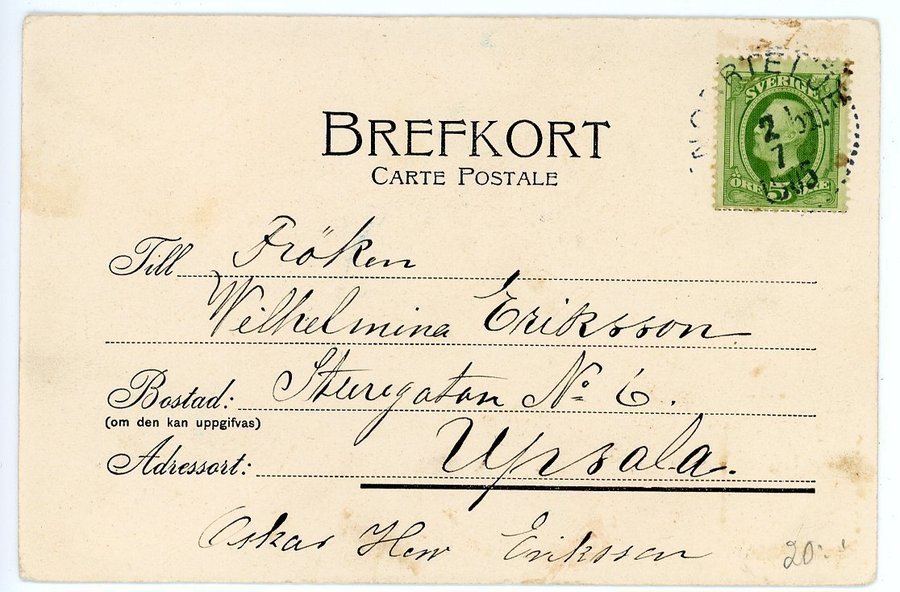 BREFKORT
CARTE POSTALE
SVERIGE
2
7
ÖRE 5
Till Fröken
Wilhelmina Eriksson
Bostad: Sturegatan No 6.
(om den kan uppgifvas)
Adressort: Upsala.
Oskar Eriksson
20:-